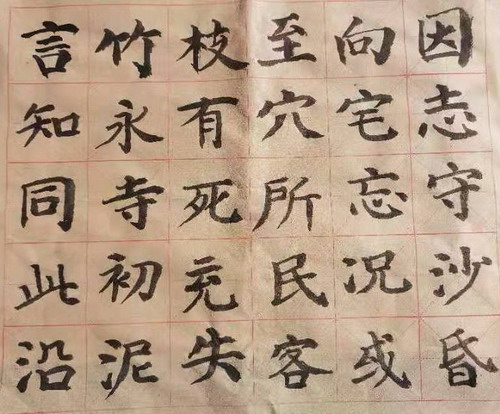 因志守沙昏
向宅忘况或
至穴所民客
枝有死充失
竹永寺初泥
言知同此沿